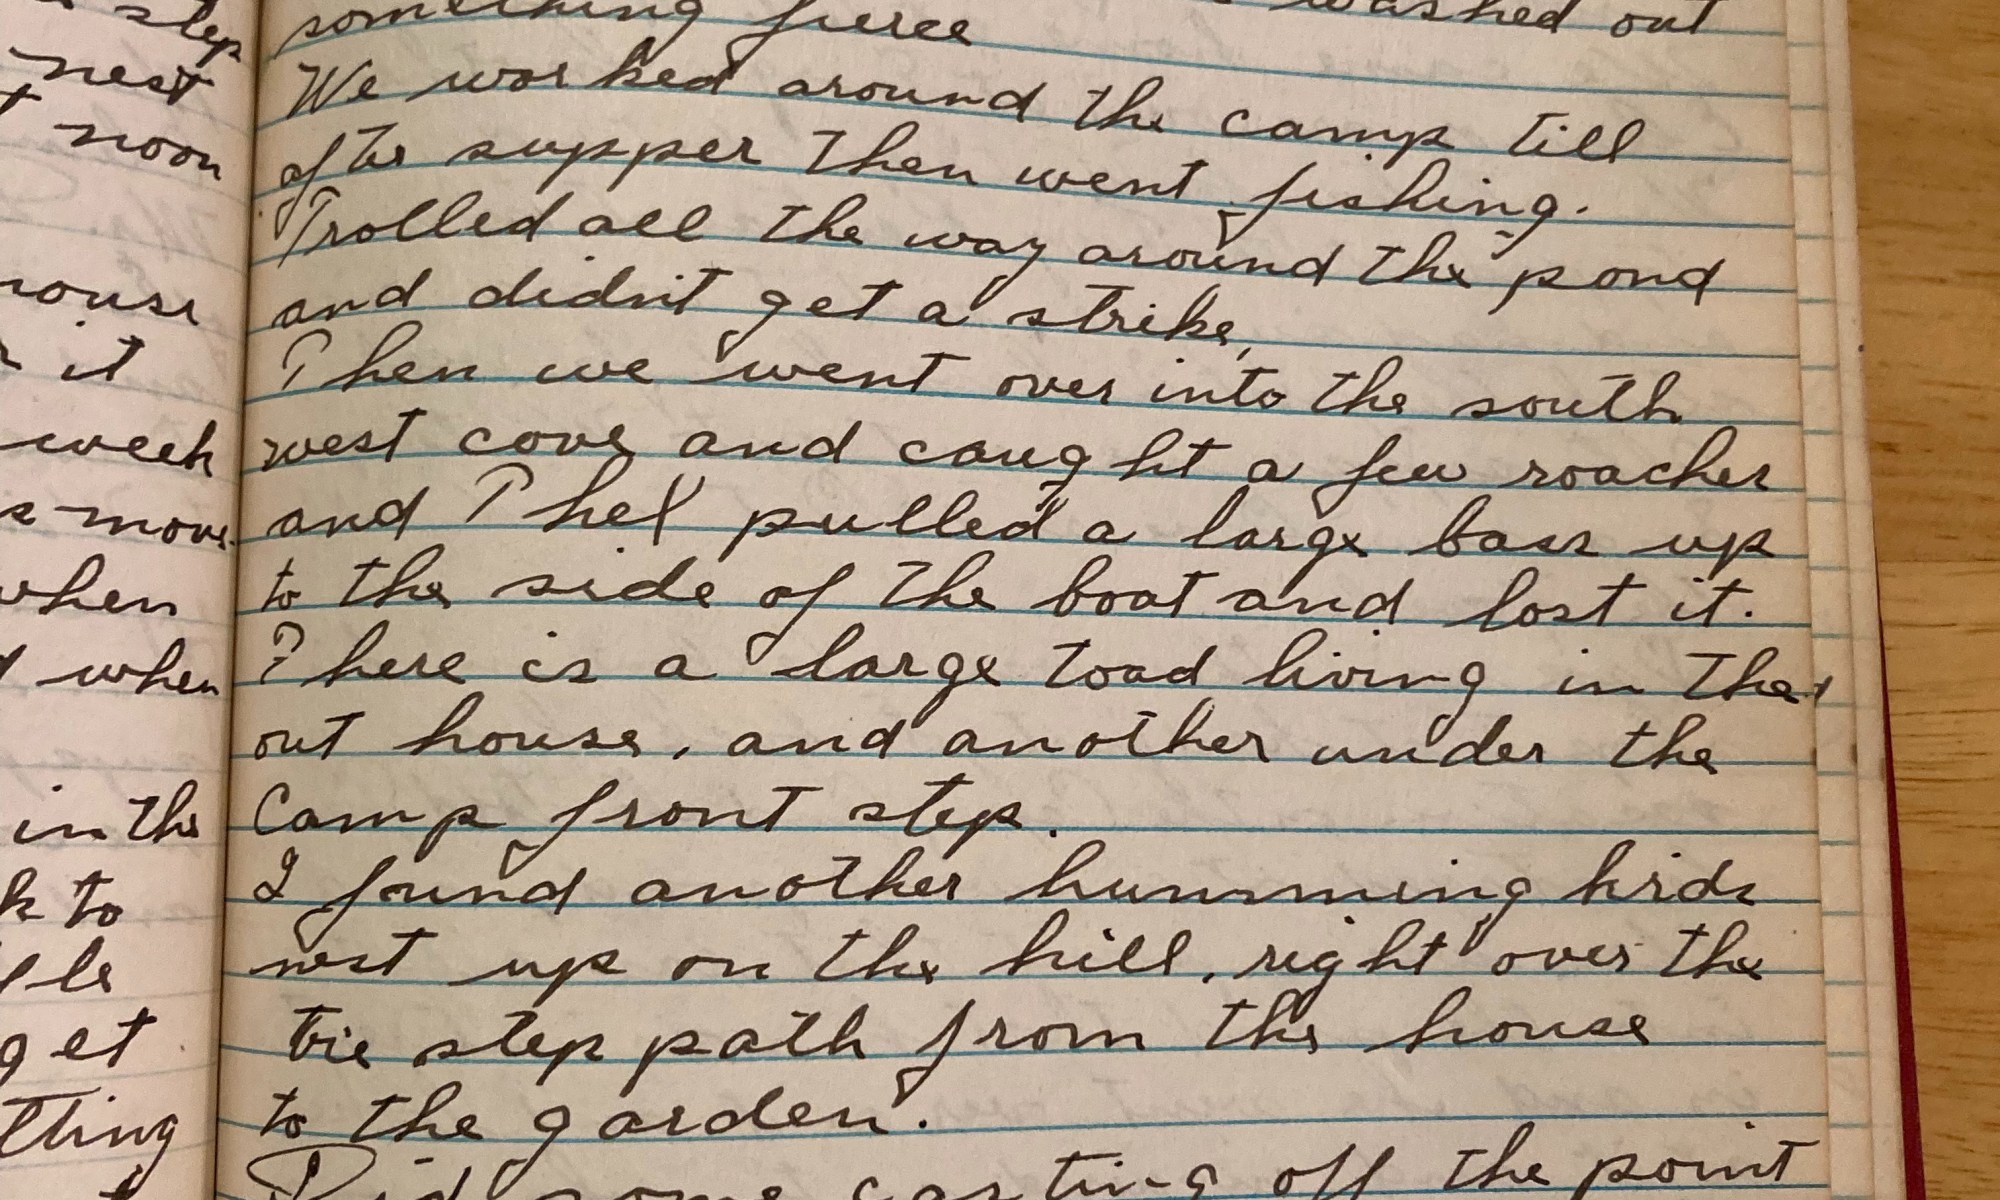 step
nest
noon
house
it
week
move
when
when
in the
to
get
thing
something fierce washed out
We worked around the camp till
after supper then went fishing.
Trolled all the way around the pond
and didn't get a strike,
Then we went over into the south
west cove and caught a few roaches
and Thel pulled a large bass up
to the side of the boat and lost it.
There is a large toad living in the
out house, and another under the
Camp front step.
I found another humming birds
nest up on the hill, right over the
tie step path from the house
to the garden.
Did some casting off the point